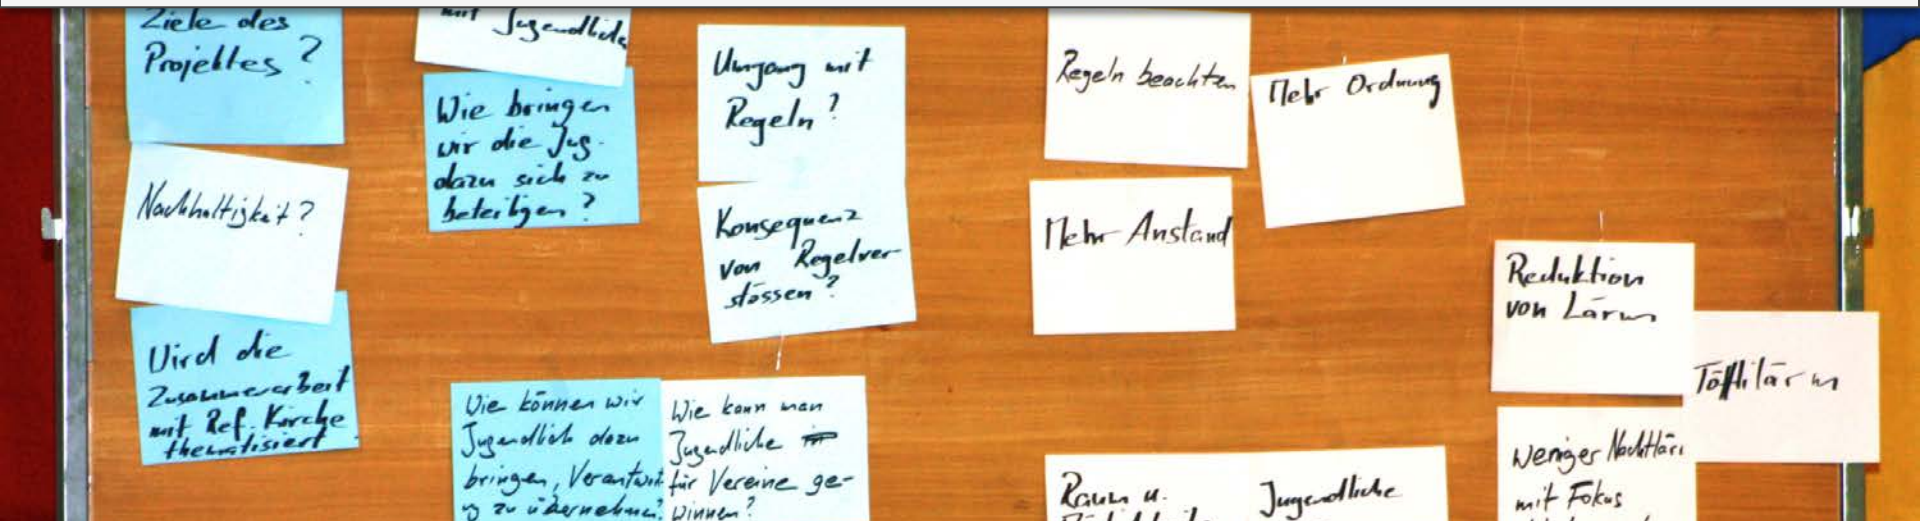 Ziele des
Projektes ?
Nachhaltigkeit ?
Wird die
Zusammenarbeit
mit Ref. Kirche
thematisiert
mit Jugendliche
Wie bringen
wir die Jug.
dazu sich zu
beteiligen ?
Wie können wir
Jugendlich dazu
bringen, Verantwort
g zu übernehmen?
Umgang mit
Regeln ?
Konsequenz
von Regelver-
stössen ?
Wie kann man
Jugendliche
für Vereine ge-
winnen?
Regeln beachten
Mehr Ordnung
Mehr Anstand
Raum u.
Jugendliche
Reduktion
von Lärm
Töfflilärm
weniger Nachtlär
mit Fokus